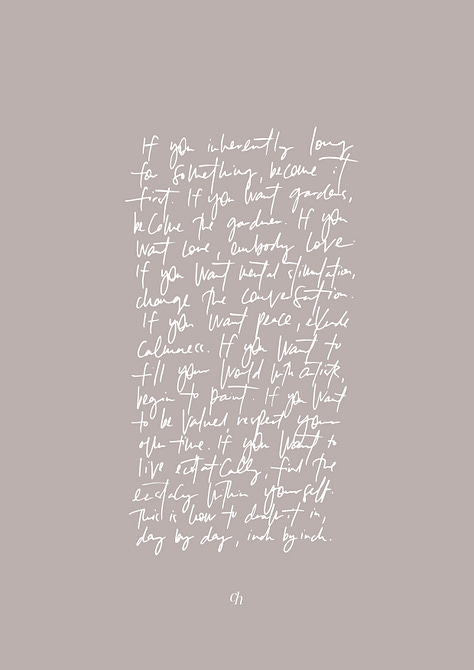 If you inherently long
for something, become it
first. If you want gardens,
become the gardener. If you
want love, embody love.
If you want mental stimulation,
change the conversation.
If you want peace, exude
calmness. If you want to
fill your world with artists,
begin to paint. If you want
to be valued, respect your
own time. If you want to
live ecstatically, find the
ecstacy within yourself.
This is how to draw it in,
day by day, inch by inch.